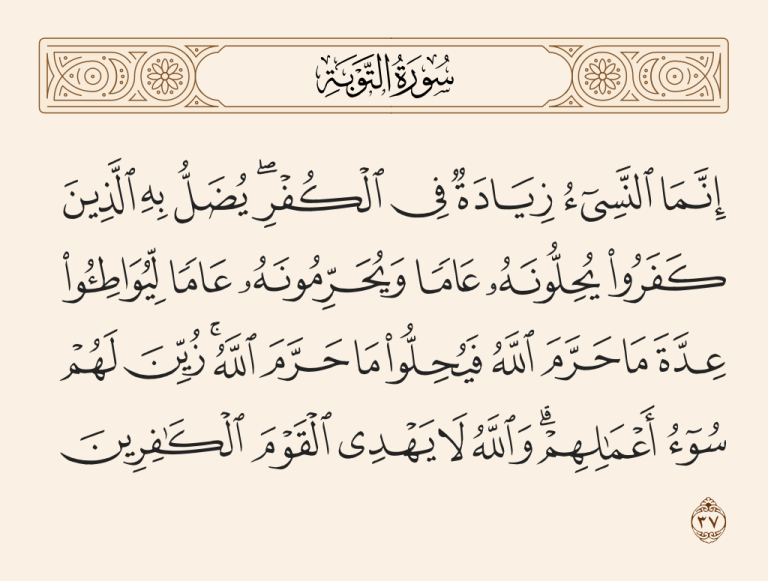 سُورَةُ التَّوْبَةِ
إِنَّمَا ٱلنَّسِىٓءُ زِيَادَةٌ فِى ٱلْكُفْرِ ۖ يُضَلُّ بِهِ ٱلَّذِينَ
كَفَرُوا۟ يُحِلُّونَهُۥ عَامًا وَيُحَرِّمُونَهُۥ عَامًا لِّيُوَاطِـُٔوا۟
عِدَّةَ مَا حَرَّمَ ٱللَّهُ فَيُحِلُّوا۟ مَا حَرَّمَ ٱللَّهُ ۚ زُيِّنَ لَهُمْ
سُوٓءُ أَعْمَـٰلِهِمْ ۗ وَٱللَّهُ لَا يَهْدِى ٱلْقَوْمَ ٱلْكَـٰفِرِينَ
٣٧